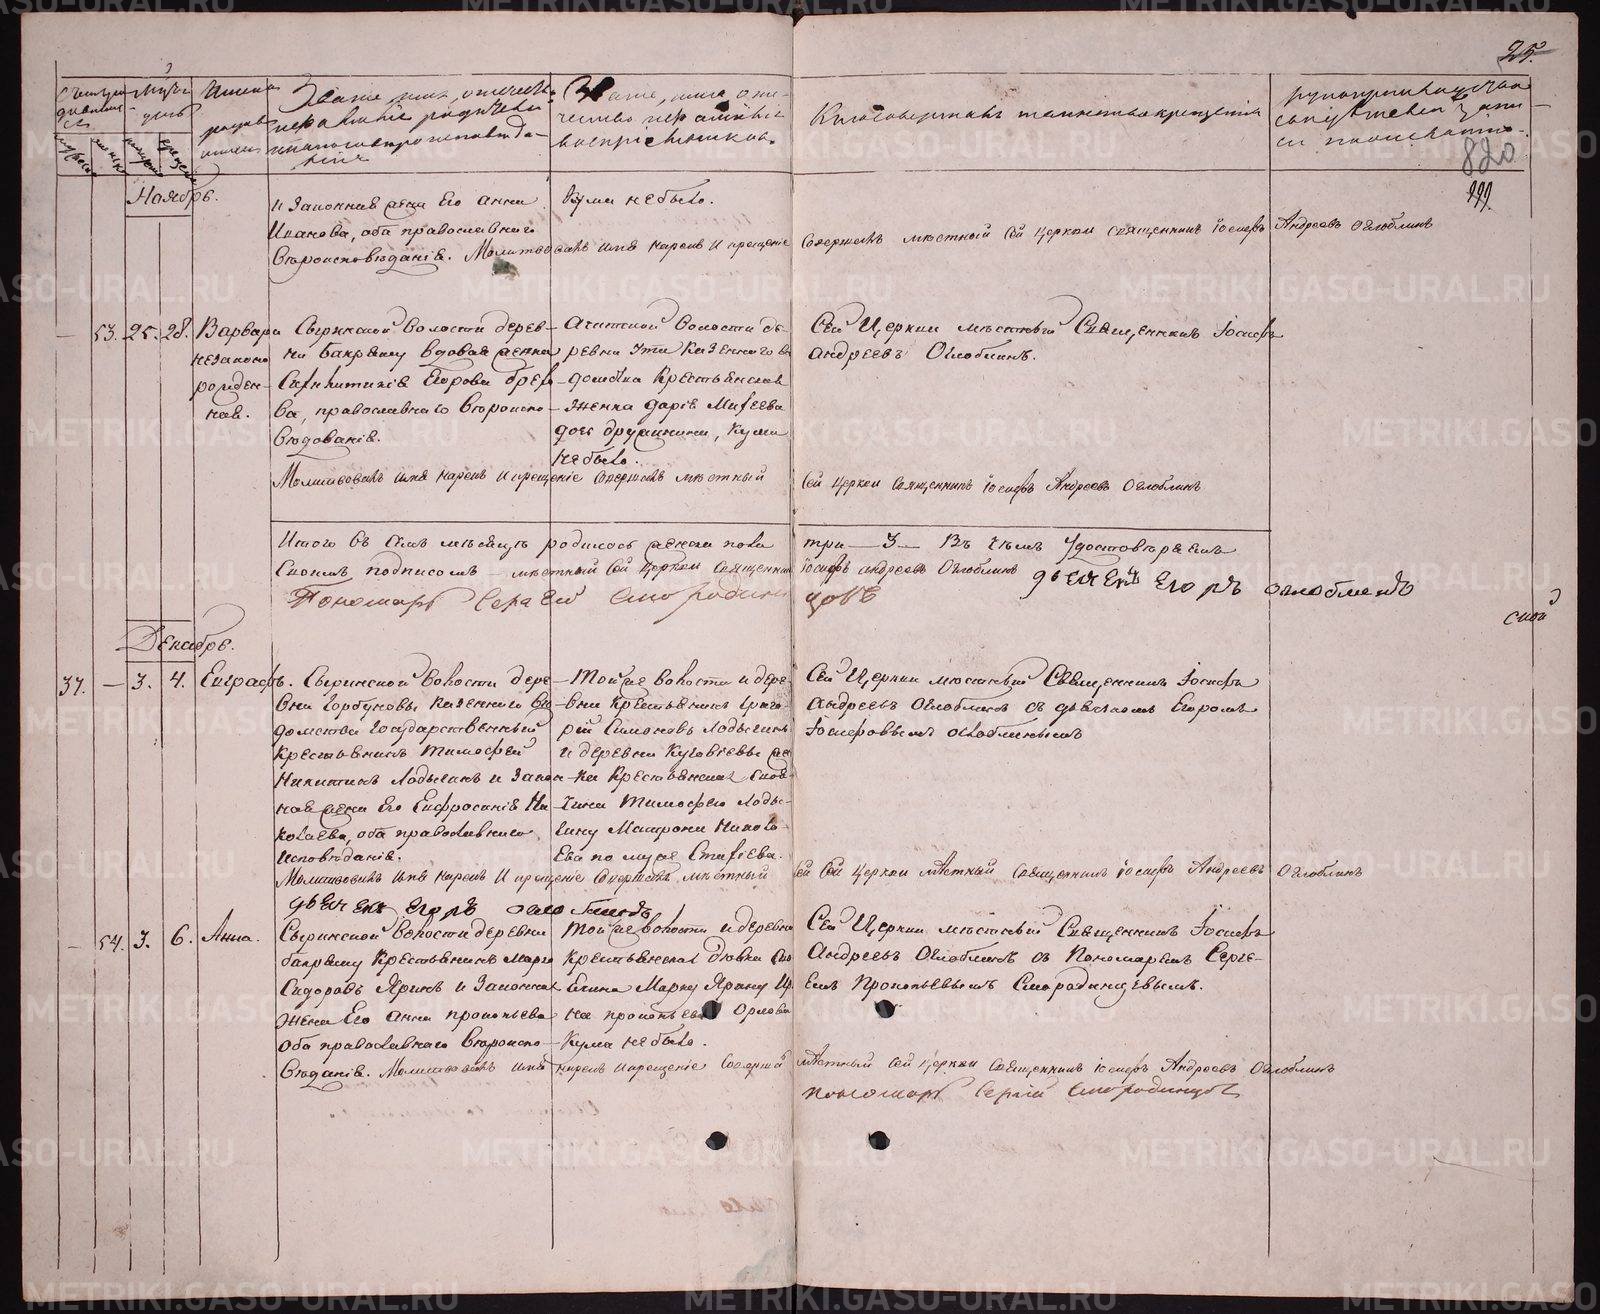 25.
Счетъ родившихся
Мѣсяцъ и день
Имена родившихся
Званіе, имя, отчество
и фамилія родителей
и какого вѣроисповѣда-
нія
Званіе, имя, отче-
ство и фамилія
воспріемниковъ.
Кто совершалъ таинство крещенія
Рукоприкладство
свидѣтелей запи-
си по желанію
820
Ноябрь.
и законная жена его Анна
Иванова, оба православнаго
вѣроисповѣданія. Молитвовалъ имя нарекъ и крещеніе
Кума небыло.
Совершилъ мѣстный сей церкви священникъ Іосифъ Андреевъ Оглоблинъ
— 53. 25. 28. Варвара
незаконо
рожден-
ная.
Сыринской волости дерев-
ни Бакряшу вдовая женка
Егорова
ва, православнаго вѣроиспо-
вѣданія.
Ачитской волости де-
ревни Ути казеннаго вѣ
домства крестьянская
женка Дарія Михеева
дочь, кума
небыло.
Сей Церкви мѣстный Священникъ Іосифъ
Андреевъ Оглоблинъ.
Молитвовалъ имя нарекъ и крещеніе совершилъ мѣстный сей церкви священникъ Іосифъ Андреевъ Оглоблинъ
Итого въ семъ мѣсяцѣ родилось женска пола три — 3 — Въ чемъ удостовѣряемъ
своимъ подписомъ — мѣстный сей церкви священникъ Іосифъ Андреевъ Оглоблинъ дьячекъ Егоръ Оглоблинъ
Пономарь Сергей Смородинцовъ
Декабрь.
37. — 3. 4. Евграфъ.
Сыринской волости дере-
вни Горбуновы казеннаго вѣ
домства государственный
крестьянинъ Тимофей
Никитинъ Лодыгинъ и закон
ная жена его Евфросинія Ни
колаева, оба православнаго
исповѣданія.
Той же волости и дере-
вни крестьянинъ Григо-
рій Симоновъ Лодыгинъ
и деревни же
ка крестьянская
Тимофею Лоды-
гину Матрона Никола
ева по мужѣ
Сей Церкви мѣстный Священникъ Іосифъ
Андреевъ Оглоблинъ съ дьячкомъ Егоромъ
Іосифовымъ Оглоблинымъ
Молитвовалъ имя нарекъ и крещеніе совершилъ мѣстный сей церкви мѣстный священникъ Іосифъ Андреевъ Оглоблинъ
дьячекъ Егоръ Оглоблинъ
— 54. 3. 6. Анна.
Сыринской волости деревни
Бакряшу крестьянинъ Марко
Сидоровъ Яринъ и законная
жена его Анна Прокопьева
оба православнаго вѣроиспо-
вѣданія. Молитвовалъ имя нарекъ и крещеніе совершилъ
Той же волости и деревни
крестьянская дѣвка
Марку Ярину Ир
на Прокопьева Орлова
Кума небыло.
Сей Церкви мѣстный Священникъ Іосифъ
Андреевъ Оглоблинъ съ Пономаремъ Серге-
емъ Прокопьевымъ Смородинцевымъ.
мѣстный сей церкви священникъ Іосифъ Андреевъ Оглоблинъ
пономарь Сергій Смородинцовъ
METRIKI.GASO-URAL.RU